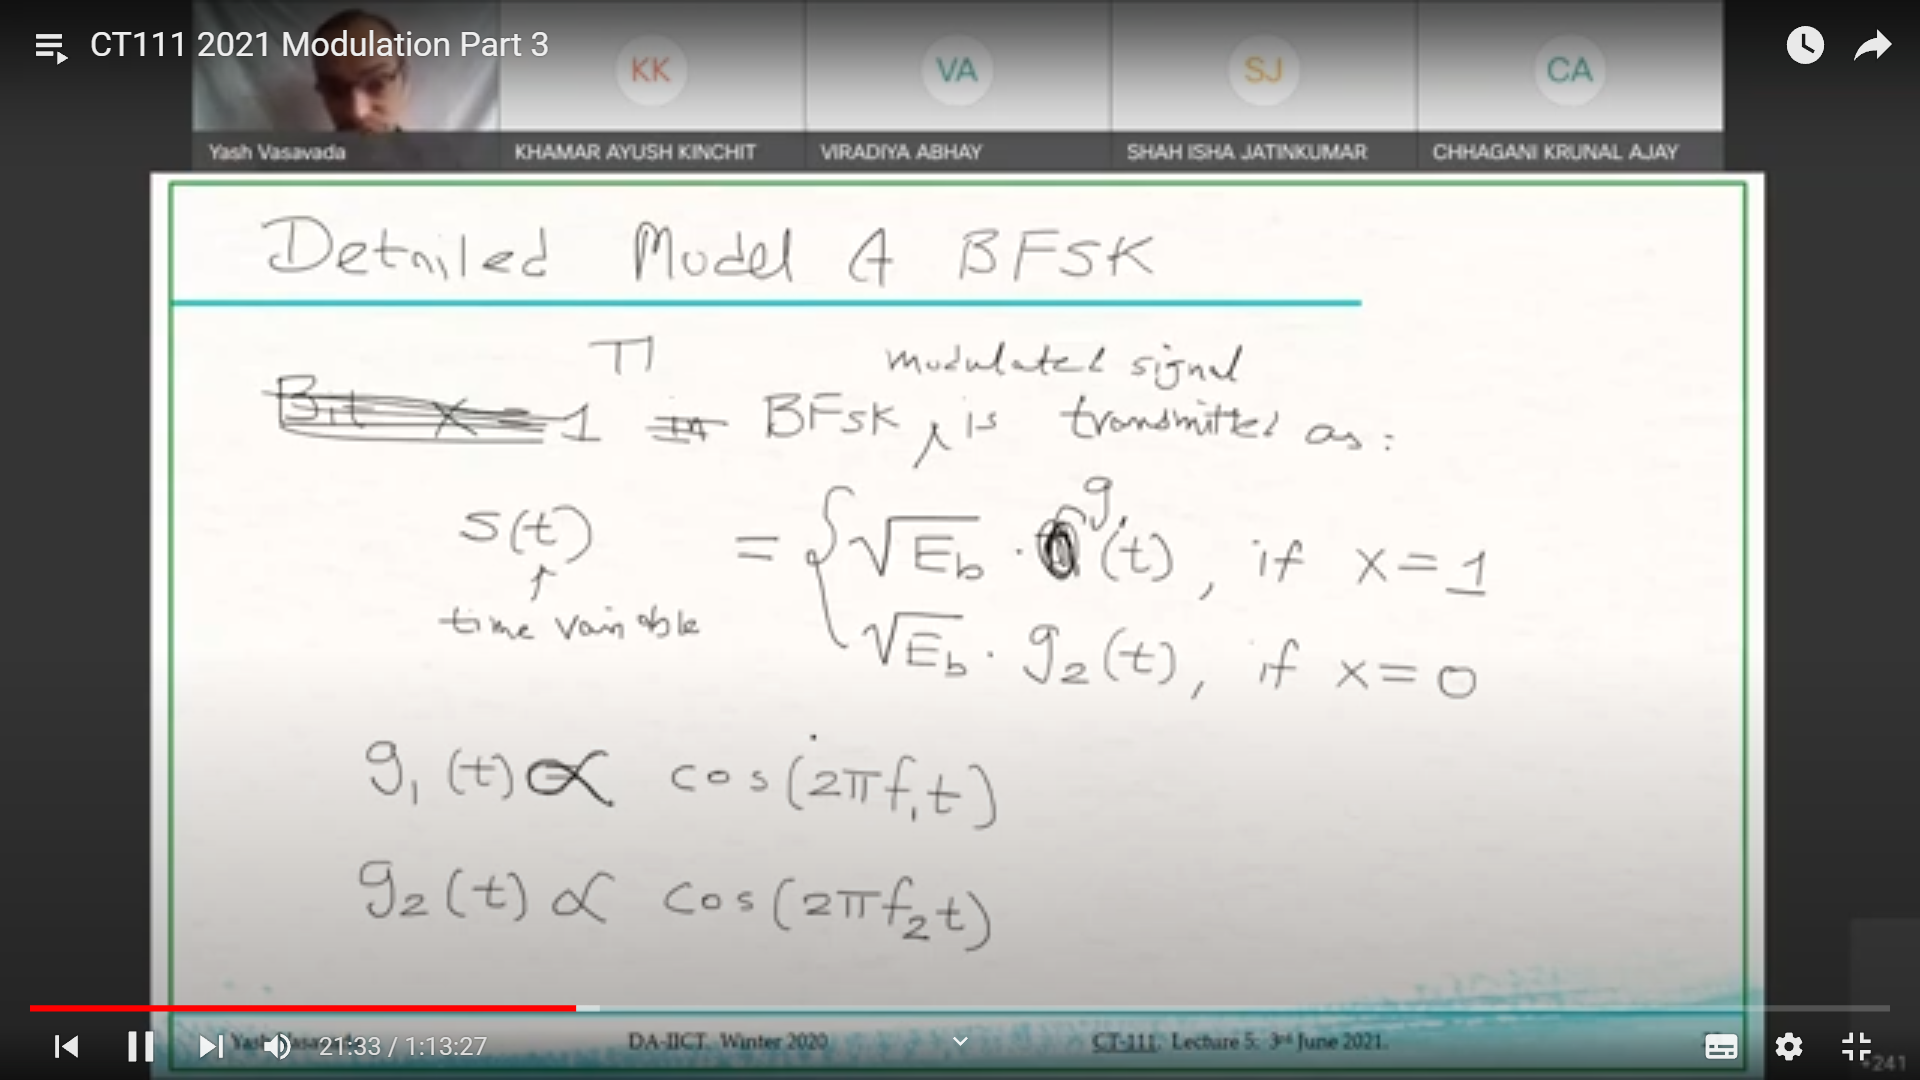 CT111 2021 Modulation Part 3
KK VA SJ CA
Yash Vasavada KHAMAR AYUSH KINCHIT VIRADIYA ABHAY SHAH ISHA JATINKUMAR CHHAGANI KRUNAL AJAY
Detailed Model of BFSK
modulated signal
BFSK, is transmitted as:
s(t) = { √E_b · g₁(t), if x = 1
time variable
√E_b · g₂(t), if x = 0
g₁(t) ∝ cos(2πf₁t)
g₂(t) ∝ cos(2πf₂t)
21:33 / 1:13:27 DA-IICT. Winter 2020 CT-111. Lecture 5: 3rd June 2021.
+241